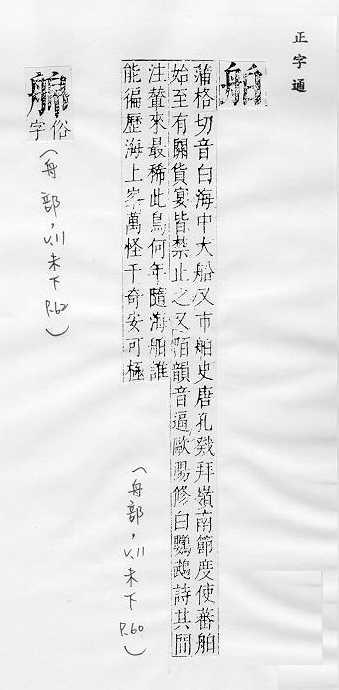 正字通
舶
蒲格切音白海中大船又市舶史唐孔戣拜嶺南節度使蕃舶
始至有閱貨宴皆禁止之又韻音逼歐陽修白鸚鵡詩其間
注輦來最稀此鳥何年隨海舶誰
能徧歷海上峯萬怪千奇安可極
(舟部,v.11未下P.60)
俗字
(舟部,v.11未下P.62)